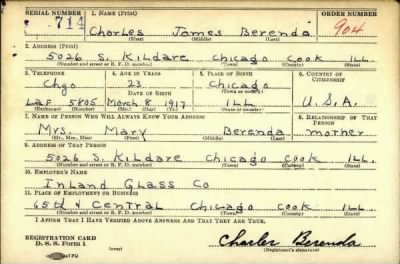 SERIAL NUMBER 1. NAME (Print) ORDER NUMBER
714 Charles James Berenda 904
(First) (Middle) (Last)
2. ADDRESS (Print)
5026 S. Kildare Chicago Cook ILL
(Number and street or R. F. D. number) (Town) (County) (State)
3. TELEPHONE 4. AGE IN YEARS 5. PLACE OF BIRTH 6. COUNTRY OF CITIZENSHIP
Chgo 23 Chicago
DATE OF BIRTH (Town or county)
LaF 5805 March 8 1917 ILL U.S.A.
(Exchange) (Number) (Mo.) (Day) (Yr.) (State or country)
7. NAME OF PERSON WHO WILL ALWAYS KNOW YOUR ADDRESS 8. RELATIONSHIP OF THAT PERSON
Mrs. Mary Berenda mother
(Mr., Mrs., Miss) (First) (Middle) (Last)
9. ADDRESS OF THAT PERSON
5026 S. Kildare Chicago Cook ILL.
(Number and street or R. F. D. number) (Town) (County) (State)
10. EMPLOYER'S NAME
Inland Glass Co
11. PLACE OF EMPLOYMENT OR BUSINESS
65th & Central Chicago Cook ILL.
(Number and street or R. F. D. number) (Town) (County) (State)
I AFFIRM THAT I HAVE VERIFIED ABOVE ANSWERS AND THAT THEY ARE TRUE.
REGISTRATION CARD
D. S. S. Form 1 (over) Charles Berenda
(Registrant's signature)